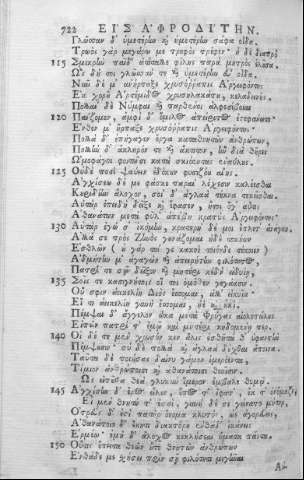 722 ΕΙΣ ΑΦΡΟΔΙΤΗΝ.
Γλῶσσαν δ' ὑμετέρην καὶ ἡμετέρην σάφα οἶδα.
Τρωὸς γὰρ μεγάρῳ με τροφὸς τρέφεν· ἡ δὲ διαπρὸ
115 Σμικρὴν παῖδ' ἀτίταλλε φίλης παρὰ μητρὸς ἑλοῦσα.
Ὣς δή τοι γλῶσσάν γε καὶ ὑμετέρην εὖ οἶδα.
Νῦν δέ μ' ἀνήρπαξε χρυσόῤῥαπις Ἀργειφόντης
Ἐκ χοροῦ Ἀρτέμιδος χρυσηλακάτου, κελαδεινῆς.
Πολλαὶ δὲ Νύμφαι καὶ παρθένοι ἀλφεσίβοιαι
120 Παίζομεν, ἀμφὶ δ' ὅμιλος ἀπείριτος ἐστεφάνωτο·
Ἔνθεν μ' ἥρπαξε χρυσόῤῥαπις Ἀργειφόντης·
Πολλὰ δ' ἐπήγαγεν ἔργα καταθνητῶν ἀνθρώπων,
Πολλὴν δ' ἄκληρόν τε καὶ ἄκτιτον, ἣν διὰ θῆρες
Ὠμοφάγοι φοιτῶσι κατὰ σκιόεντας ἐναύλους·
125 Οὐδὲ ποσὶ ψαύειν ἐδόκουν φυσιζόου αἴης.
Ἀγχίσεω δέ με φάσκε παραὶ λέχεσιν καλέεσθαι
Κουριδίην ἄλοχον, σοὶ δ' ἀγλαὰ τέκνα τεκεῖσθαι.
Αὐτὰρ ἐπειδὴ δεῖξε καὶ ἔφρασεν, ἤτοι ὅγ' αὖθις
Ἀθανάτων μετὰ φῦλ' ἀπέβη κρατὺς Ἀργειφόντης·
130 Αὐτὰρ ἐγώ σ' ἱκόμην, κρατερὴ δέ μοι ἔπλετ' ἀνάγκη.
Ἀλλά σε πρὸς Ζηνὸς γουνάζομαι ἠδὲ τοκήων
Ἐσθλῶν (οὐ γάρ τοι γε κακοὶ τοιόνδε τέκοιεν)
Ἀδμήτην μ' ἀγαγὼν καὶ ἀπειρήτην φιλότητος,
Πατρί τε σῷ δεῖξον καὶ μητέρι κεδνὰ ἰδυίῃ,
135 Σοῖς τε κασιγνήτοις οἵ τοι ὁμόθεν γεγάασιν.
Οὔ σφιν ἀεικελίη
Εἴ τοι ἀεικελίη γυνὴ ἔσσομαι, ἠὲ καὶ οὐκί.
Πέμψαι δ' ἄγγελον ὦκα μετὰ Φρύγας αἰολοπώλους
Εἰπεῖν πατρί τ' ἐμῷ καὶ μητέρι κηδομένῃ περ.
140 Οἱ δέ τε χρυσόν κεν ἅλις ἐσθῆτά θ' ὑφαντὴν
Πέμψουσιν· σὺ δὲ πολλὰ καὶ ἀγλαὰ δέχθαι ἄποινα.
Ταῦτα δὲ ποιήσας δαίνυ γάμον ἱμερόεντα,
Τίμιον ἀνθρώποισι καὶ ἀθανάτοισι θεοῖσιν.
Ὣς εἰποῦσα θεὰ γλυκὺν ἵμερον ἔμβαλε θυμῷ.
145 Ἀγχίσην δ' ἔρος εἷλεν, ἔπος τ' ἔφατ', ἔκ τ' ὀνόμαζεν·
Εἰ μὲν θνητή τ' ἐσσὶ, γυνὴ δέ σε γείνατο μήτηρ,
Ὀτρεὺς δ' ἐστὶ πατὴρ ὄνομα κλυτὸς, ὡς ἀγορεύεις,
Ἀθανάτου δ' ἕκητι διακτόρου ἐνθάδ' ἱκάνεις
Ἑρμέω· ἐμὴ δ' ἄλοχος κεκλήσεαι ἤματα πάντα.
150 Οὔτις ἔπειτα θεῶν οὔτε θνητῶν ἀνθρώπων
Ἐνθάδε με σχήσει πρὶν σῇ φιλότητι μιγῆναι
Αὐ-